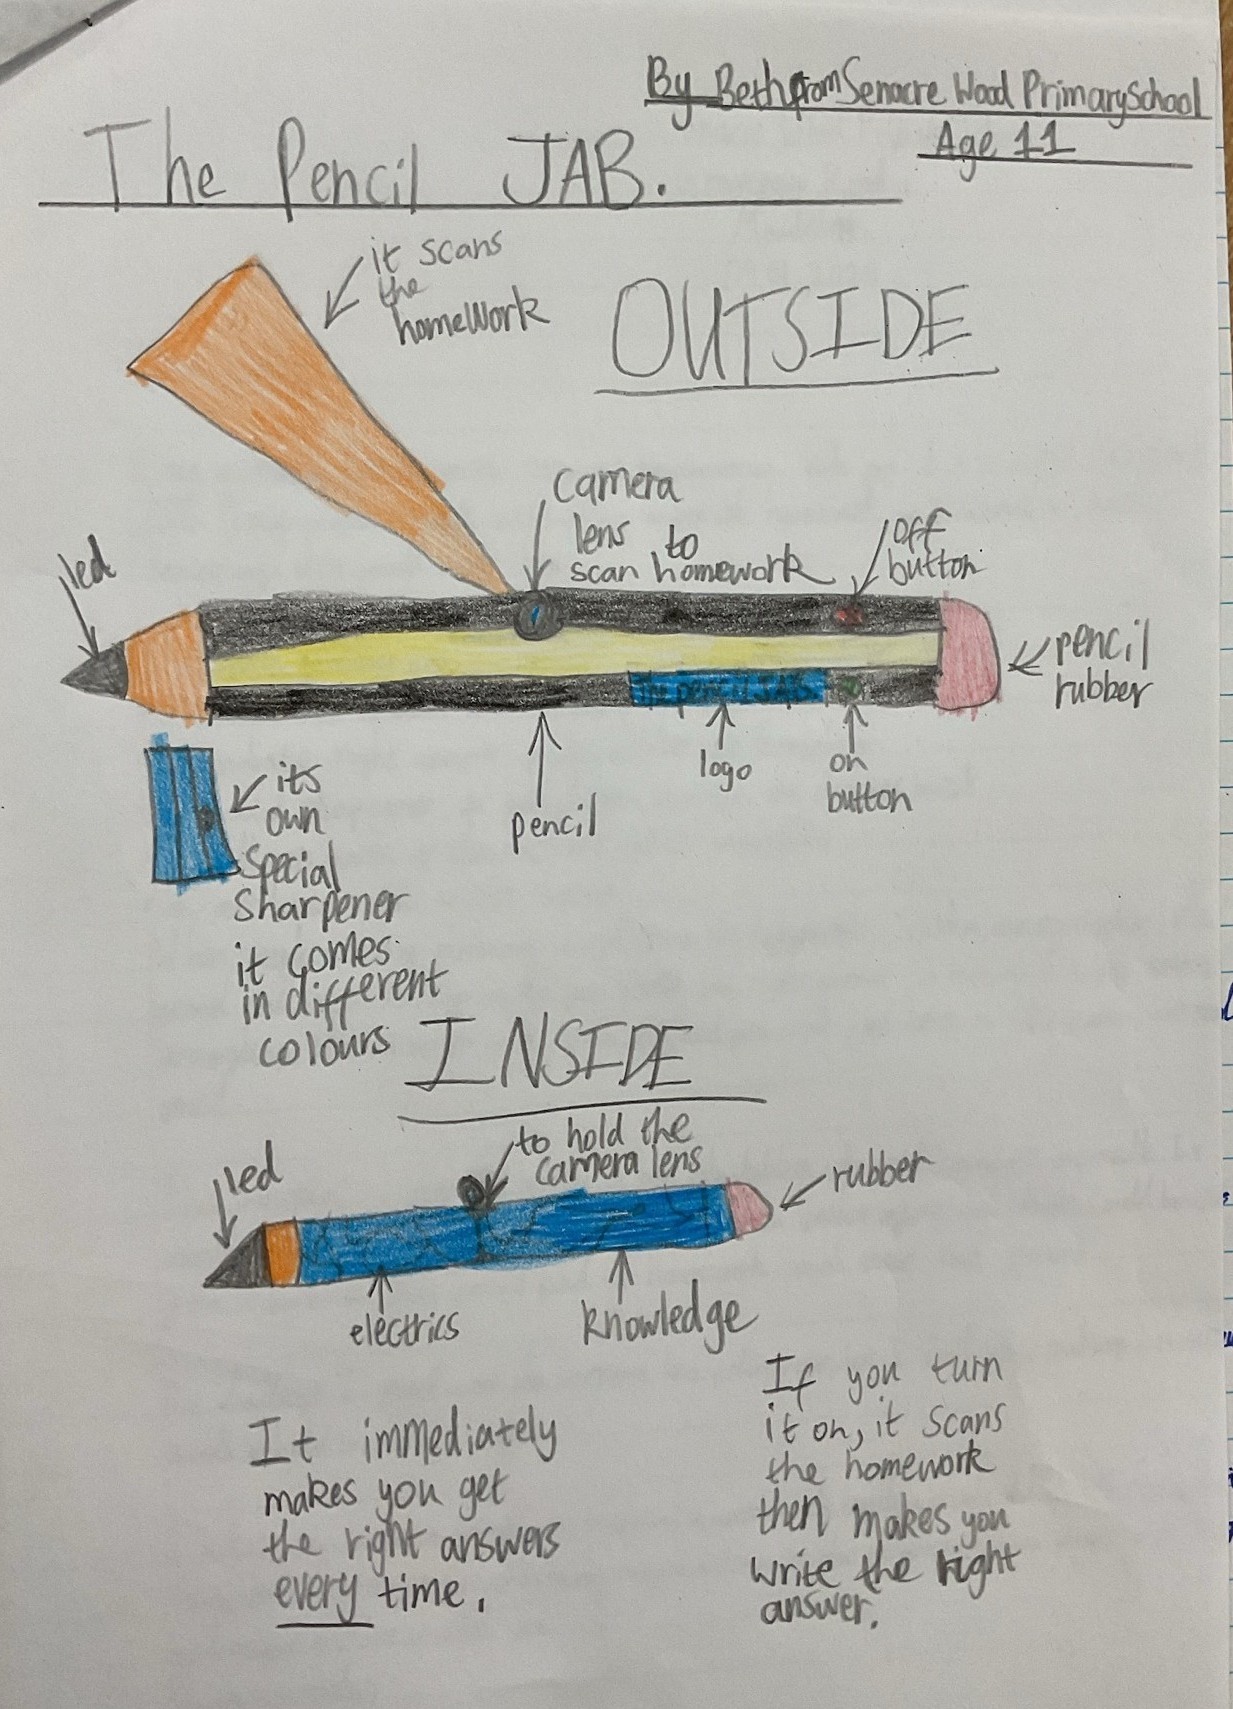 By Beth from Senacre Wood Primary School
Age 11
The Pencil JAB.
it scans
the
homework
OUTSIDE
Camera
lens to
scan homework
off
button
led
pencil
rubber
The pencil JAB
logo
on
button
pencil
its
own
special
sharpener
it comes
in different
colours
INSIDE
to hold the
camera lens
led
rubber
electrics
knowledge
It immediately
makes you get
the right answers
every time.
If you turn
it on, it scans
the homework
then makes you
write the right
answer.